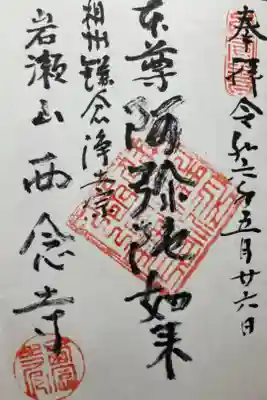 奉拝 令和六年五月廿六日
本尊 阿弥陀如来
相州鎌倉浄土宗
岩瀬山 西念寺